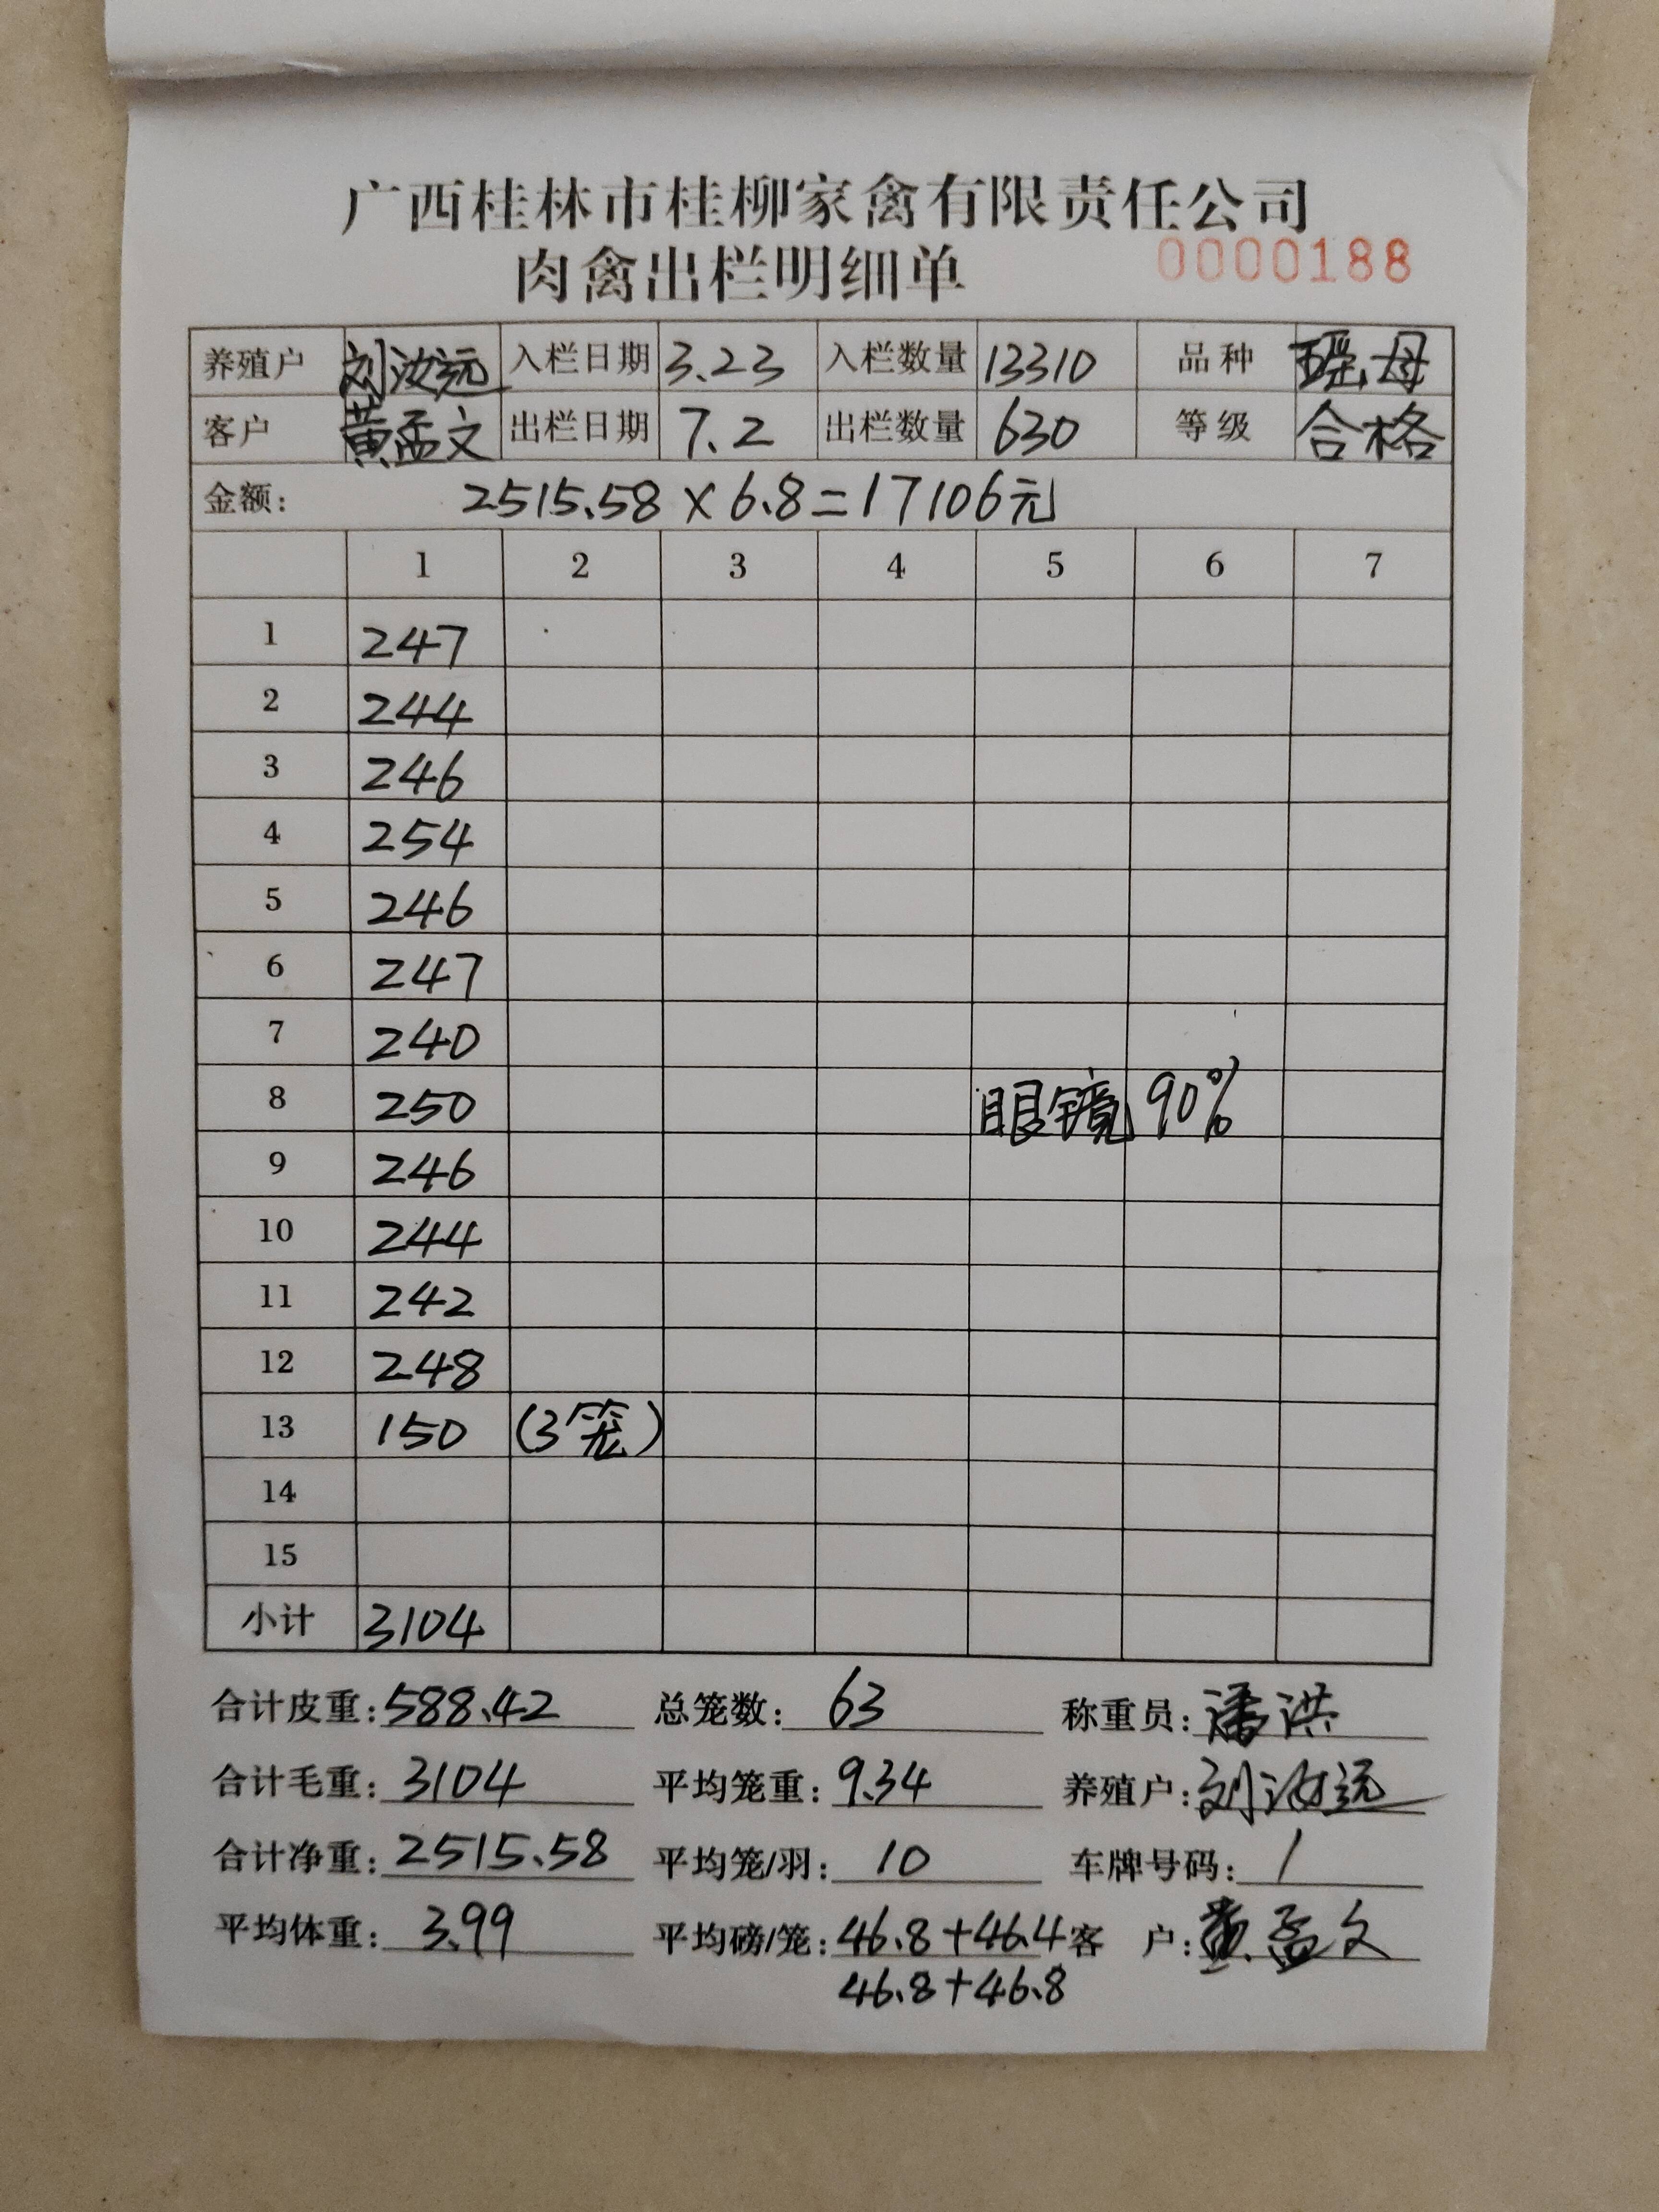 广西桂林市桂柳家禽有限责任公司
肉禽出栏明细单 0000188
养殖户 刘汝远 入栏日期 3.23 入栏数量 13310 品种 瑶.母
客户 黄孟文 出栏日期 7.2 出栏数量 630 等级 合格
金额: 2515.58×6.8=17106元
1 2 3 4 5 6 7
1 247
2 244
3 246
4 254
5 246
6 247
7 240
8 250 眼镜 90%
9 246
10 244
11 242
12 248
13 150 (3笼)
14
15
小计 3104
合计皮重: 588.42 总笼数: 63 称重员: 潘洪
合计毛重: 3104 平均笼重: 9.34 养殖户: 刘汝远
合计净重: 2515.58 平均笼/羽: 10 车牌号码: /
平均体重: 3.99 平均磅/笼: 46.8+46.4 客户: 黄孟文
46.8+46.8